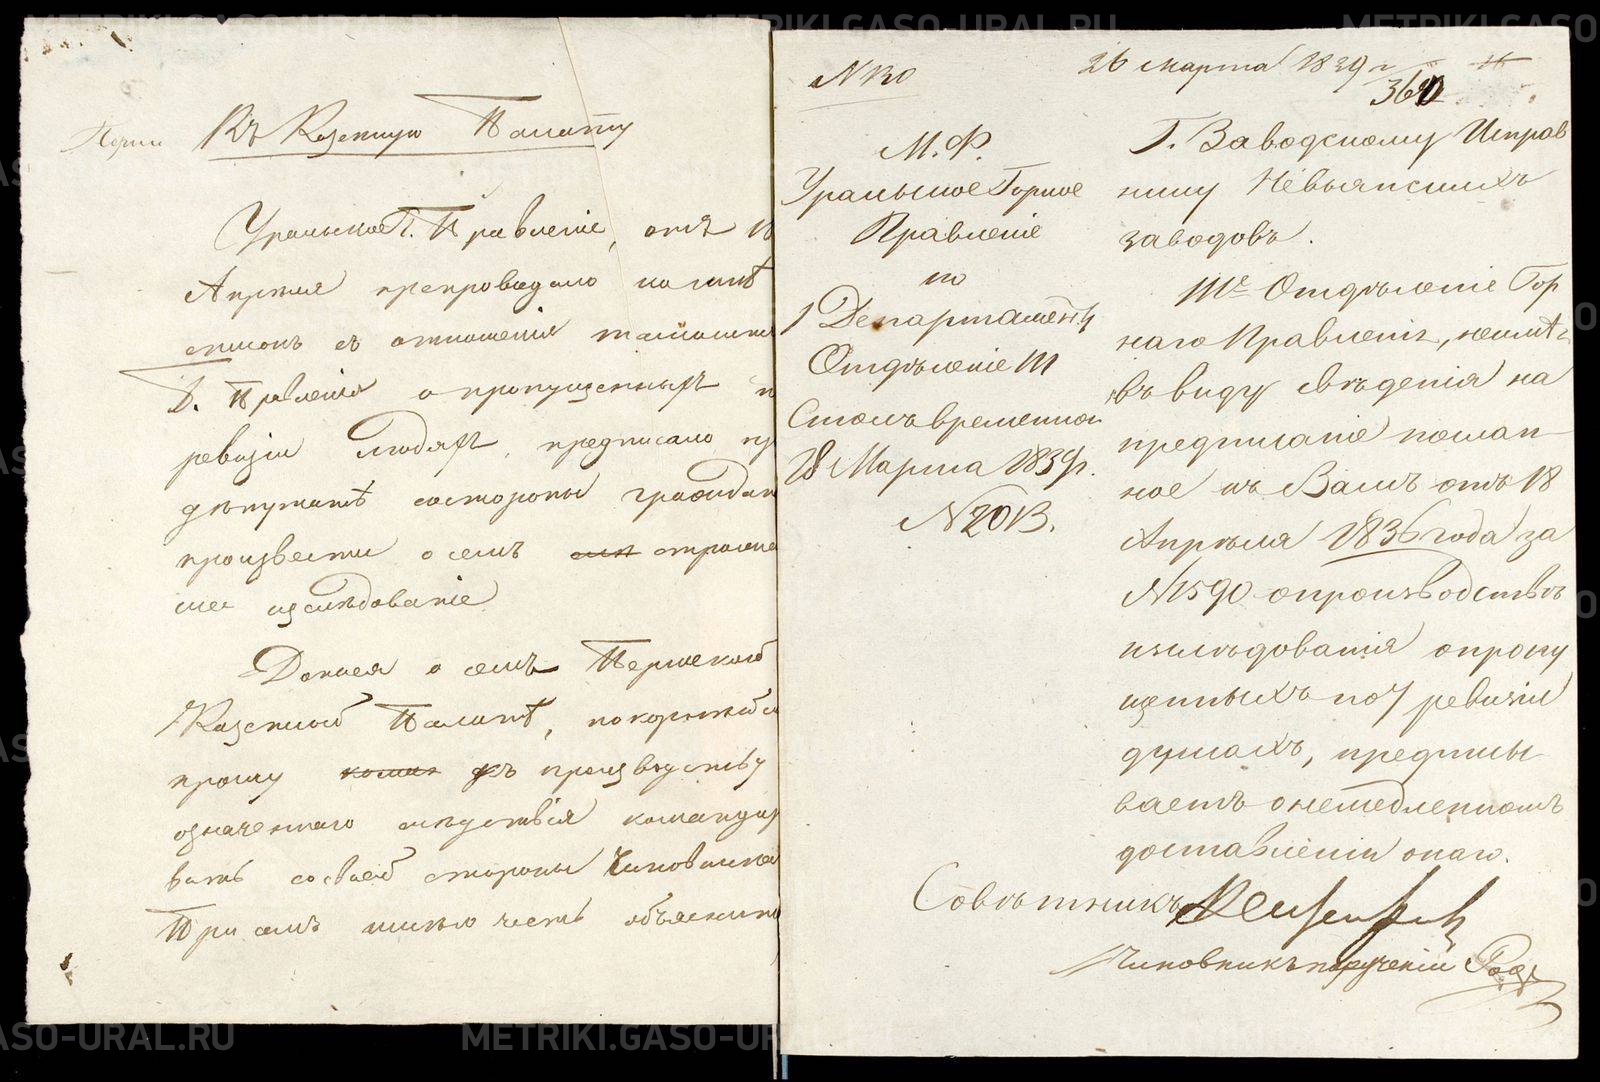 METRIKI.GASO-URAL.RU
Перми Въ Казенную Палату
Уральское Г. Правленіе, отъ 18
Апреля препроводило ко мнѣ
списокъ съ отношенія
Г. Правленія о пропущенныхъ п
ревизіи людяхъ, предписало пр
депутатѣ со стороны граждан
произвести о семъ
изслѣдованіе
Донося о семъ Пермской
Казенной Палатѣ, покорнѣйше
прошу къ производству
означеннаго следствія командиро
вать со своей стороны Чиновника
При семъ имѣю честь объяснить
N 130
26 Марта 1839 г
М. Ф.
Уральское Горное
Правленіе
по
1 Департаменту
Отдѣленіе III
Столъ временной
18 Марта 1839 г.
N 2013.
Г. Заводскому Исправ
нику Невьянскихъ
заводовъ.
III е Отдѣленіе Гор
наго Правленія, неимѣя
въ виду свѣденія на
предписаніе послан
ное къ Вамъ отъ 18
Апрѣля 1836 года за
N 1590 о производствѣ
изслѣдованія о пропу
щенныхъ по 7 ревизіи
душахъ, предписы
ваетъ о немедленномъ
доставленіи онаго.
Совѣтникъ
Чиновникъ порученій
METRIKI.GASO-URAL.RU